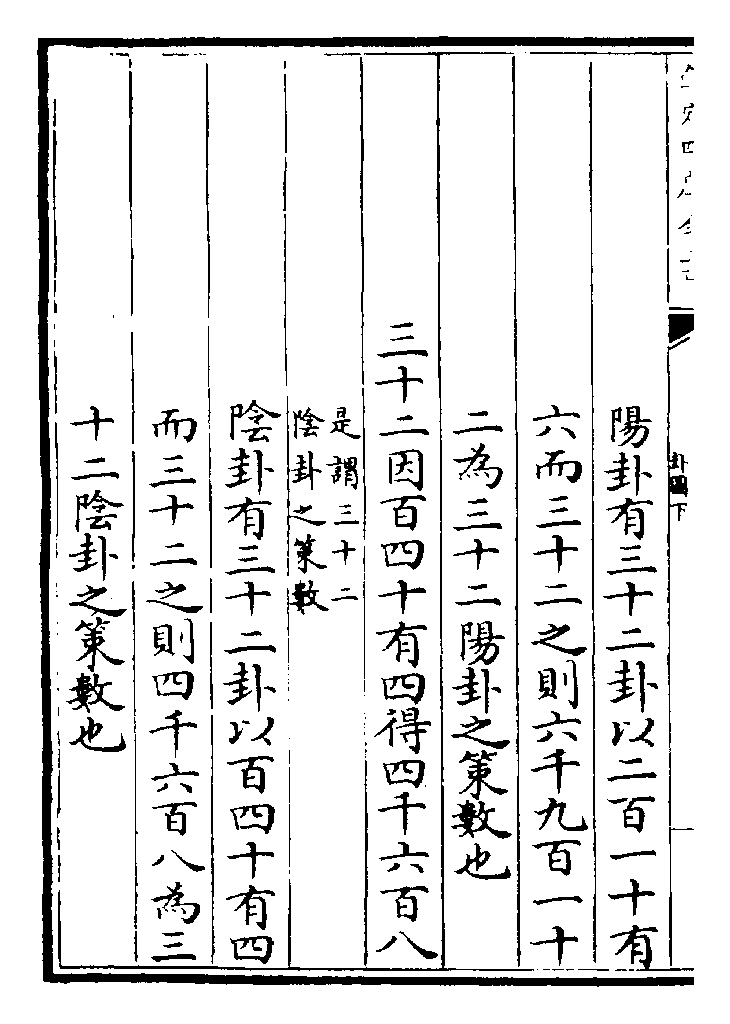 卦圖下
陽卦有三十二卦以二百一十有
六而三十二之則六千九百一十
二為三十二陽卦之策數也
三十二因百四十有四得四千六百八
是謂三十二
陰卦之策數
陰卦有三十二卦以百四十有四
而三十二之則四千六百八為三
十二陰卦之策數也